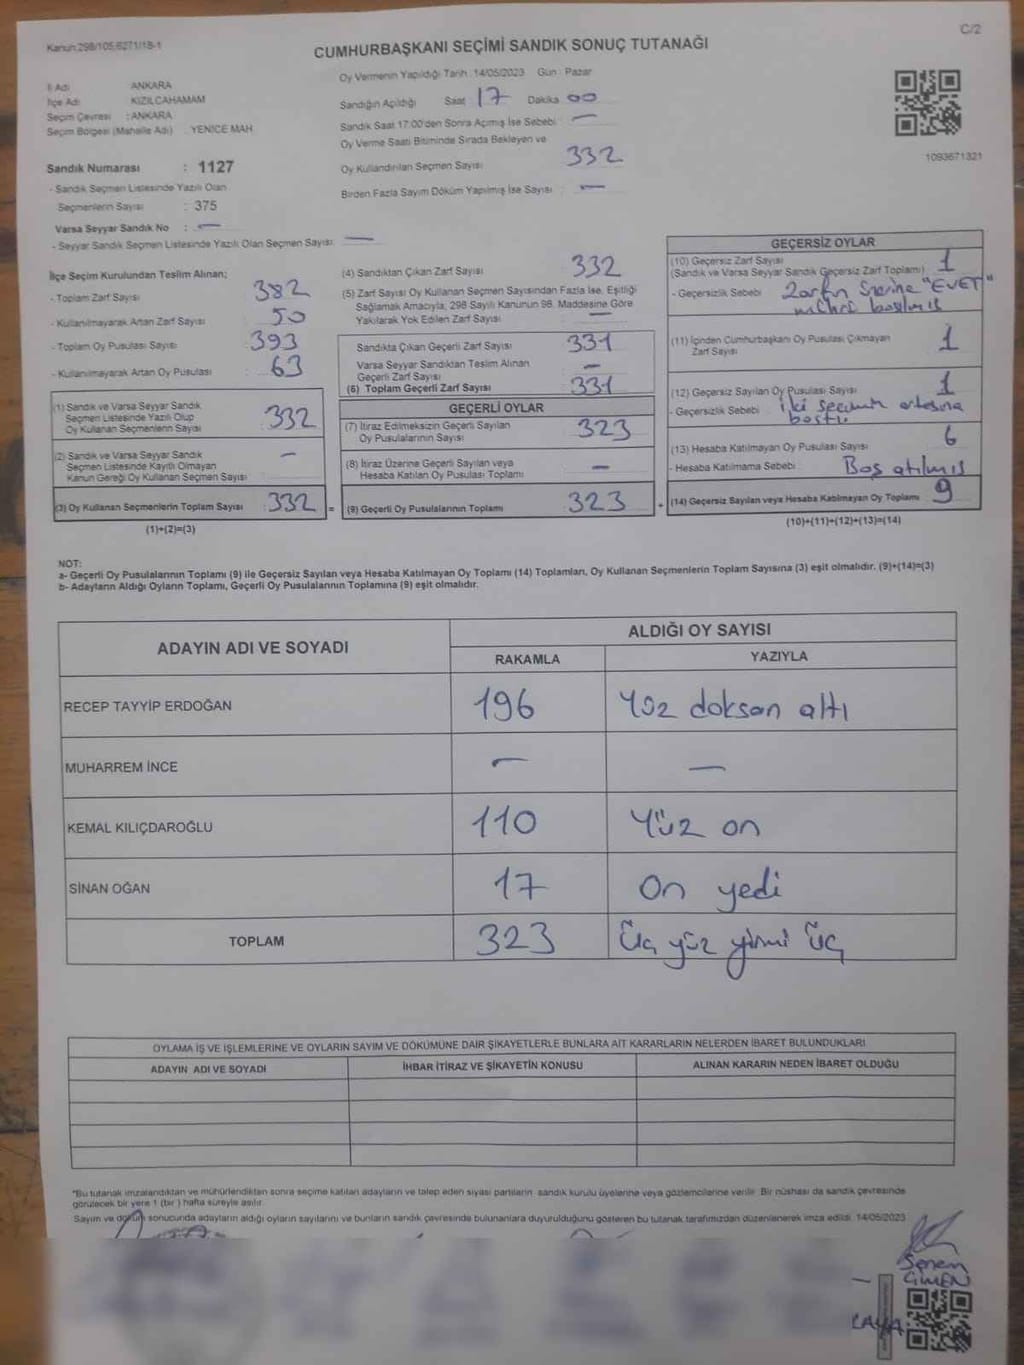 Kanun:298/105,6271/18-1
C/2
CUMHURBAŞKANI SEÇİMİ SANDIK SONUÇ TUTANAĞI
İl Adı : ANKARA
İlçe Adı : KIZILCAHAMAM
Seçim Çevresi : ANKARA
Seçim Bölgesi (Mahalle Adı) : YENİCE MAH
Sandık Numarası : 1127
- Sandık Seçmen Listesinde Yazılı Olan
Seçmenlerin Sayısı : 375
Varsa Seyyar Sandık No : —
- Seyyar Sandık Seçmen Listesinde Yazılı Olan Seçmen Sayısı: —
Oy Vermenin Yapıldığı Tarih :14/05/2023 Gün : Pazar
Sandığın Açıldığı Saat 17 Dakika 00
Sandık Saat 17:00'den Sonra Açılmış İse Sebebi: —
Oy Verme Saati Bitiminde Sırada Bekleyen ve
Oy Kullandırılan Seçmen Sayısı 332
Birden Fazla Sayım Döküm Yapılmış İse Sayısı : —
1093671321
İlçe Seçim Kurulundan Teslim Alınan;
- Toplam Zarf Sayısı : 382
- Kullanılmayarak Artan Zarf Sayısı : 50
- Toplam Oy Pusulası Sayısı : 393
- Kullanılmayarak Artan Oy Pusulası : 63
(1) Sandık ve Varsa Seyyar Sandık
Seçmen Listesinde Yazılı Olup
Oy Kullanan Seçmenlerin Sayısı : 332
(2) Sandık ve Varsa Seyyar Sandık
Seçmen Listesinde Kayıtlı Olmayan
Kanun Gereği Oy Kullanan Seçmen Sayısı : —
(3) Oy Kullanan Seçmenlerin Toplam Sayısı : 332 =
(1)+(2)=(3)
(4) Sandıktan Çıkan Zarf Sayısı : 332
(5) Zarf Sayısı Oy Kullanan Seçmen Sayısından Fazla İse, Eşitliği
Sağlamak Amacıyla, 298 Sayılı Kanunun 98. Maddesine Göre
Yakılarak Yok Edilen Zarf Sayısı : —
Sandıkta Çıkan Geçerli Zarf Sayısı : 331
Varsa Seyyar Sandıktan Teslim Alınan
Geçerli Zarf Sayısı : —
(6) Toplam Geçerli Zarf Sayısı : 331
GEÇERLİ OYLAR
(7) İtiraz Edilmeksizin Geçerli Sayılan
Oy Pusulalarının Sayısı : 323
(8) İtiraz Üzerine Geçerli Sayılan veya
Hesaba Katılan Oy Pusulası Toplamı : —
(9) Geçerli Oy Pusulalarının Toplamı : 323 +
GEÇERSİZ OYLAR
(10) Geçersiz Zarf Sayısı : 1
(Sandık ve Varsa Seyyar Sandık Geçersiz Zarf Toplamı)
- Geçersizlik Sebebi : Zarfın üzerine "EVET"
mührü basılmış
(11) İçinden Cumhurbaşkanı Oy Pusulası Çıkmayan
Zarf Sayısı : 1
(12) Geçersiz Sayılan Oy Pusulası Sayısı : 1
- Geçersizlik Sebebi : iki seçimin ortasına
bastı.
(13) Hesaba Katılmayan Oy Pusulası Sayısı : 6
- Hesaba Katılmama Sebebi : Boş atılmış
(14) Geçersiz Sayılan veya Hesaba Katılmayan Oy Toplamı : 9
(10)+(11)+(12)+(13)=(14)
NOT:
a- Geçerli Oy Pusulalarının Toplamı (9) ile Geçersiz Sayılan veya Hesaba Katılmayan Oy Toplamı (14) Toplamları, Oy Kullanan Seçmenlerin Toplam Sayısına (3) eşit olmalıdır. (9)+(14)=(3)
b- Adayların Aldığı Oyların Toplamı, Geçerli Oy Pusulalarının Toplamına (9) eşit olmalıdır.
ADAYIN ADI VE SOYADI
ALDIĞI OY SAYISI
RAKAMLA YAZIYLA
RECEP TAYYİP ERDOĞAN 196 Yüz doksan altı
MUHARREM İNCE — —
KEMAL KILIÇDAROĞLU 110 Yüz on
SİNAN OĞAN 17 On yedi
TOPLAM 323 Üç yüz yirmi üç
OYLAMA İŞ VE İŞLEMLERİNE VE OYLARIN SAYIM VE DÖKÜMÜNE DAİR ŞİKAYETLERLE BUNLARA AİT KARARLARIN NELERDEN İBARET BULUNDUKLARI
ADAYIN ADI VE SOYADI İHBAR İTİRAZ VE ŞİKAYETİN KONUSU ALINAN KARARIN NEDEN İBARET OLDUĞU
*Bu tutanak imzalandıktan ve mühürlendikten sonra seçime katılan adayların ve talep eden siyasi partilerin sandık kurulu üyelerine veya gözlemcilerine verilir. Bir nüshası da sandık çevresinde
görülecek bir yere 1 (bir) hafta süreyle asılır.
Sayım ve döküm sonucunda adayların aldığı oyların sayılarını ve bunların sandık çevresinde bulunanlara duyurulduğunu gösteren bu tutanak tarafımızdan düzenlenerek imza edildi. 14/05/2023
Senem
ÇİMEN
KAYA